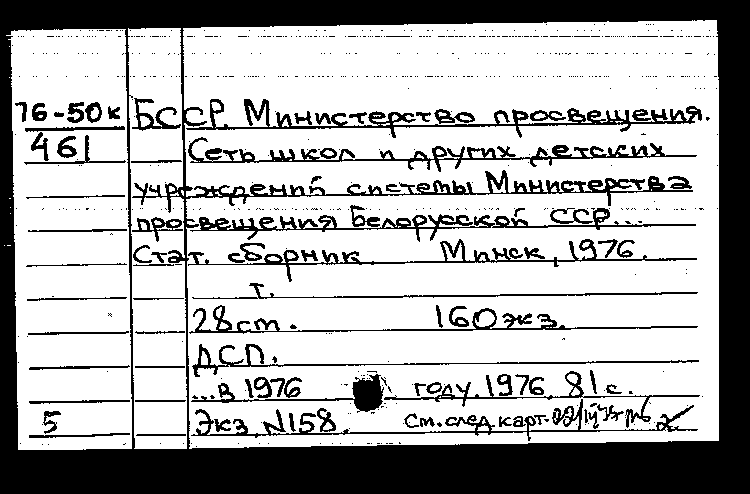 76-50к БССР. Министерство просвещения.
461 Сеть школ и других детских
учреждений системы Министерства
просвещения Белорусской ССР...
Стат. сборник. Минск, 1976.
т.
28ст. 160экз.
ДСП.
...в 1976 году. 1976. 81с.
5 Экз. N158. См. след. карт.